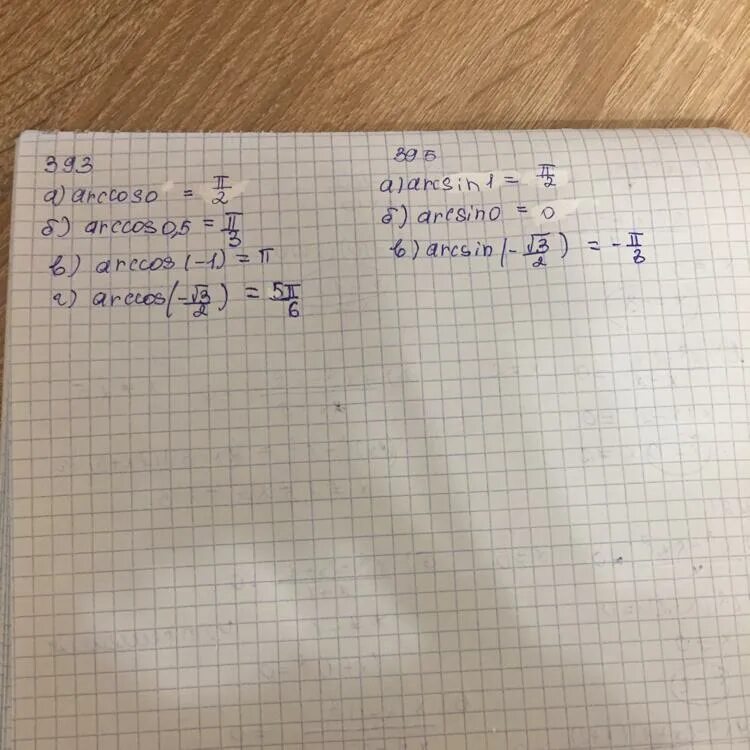 393
а) arccos0 = π/2
б) arccos0,5 = π/3
в) arccos(-1) = π
г) arccos(-√3/2) = 5π/6
395
а) arcsin1 = π/2
б) arcsin0 = 0
в) arcsin(-√3/2) = -π/3